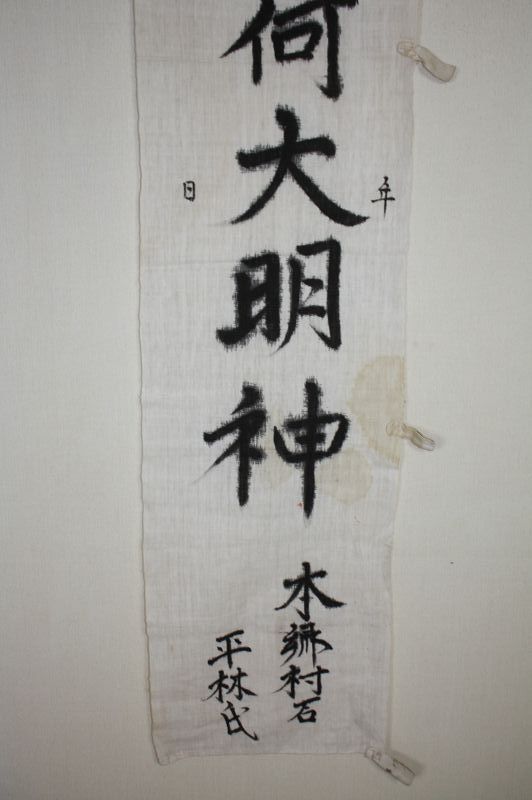 年
何大明神
日
本郷村石
平林氏